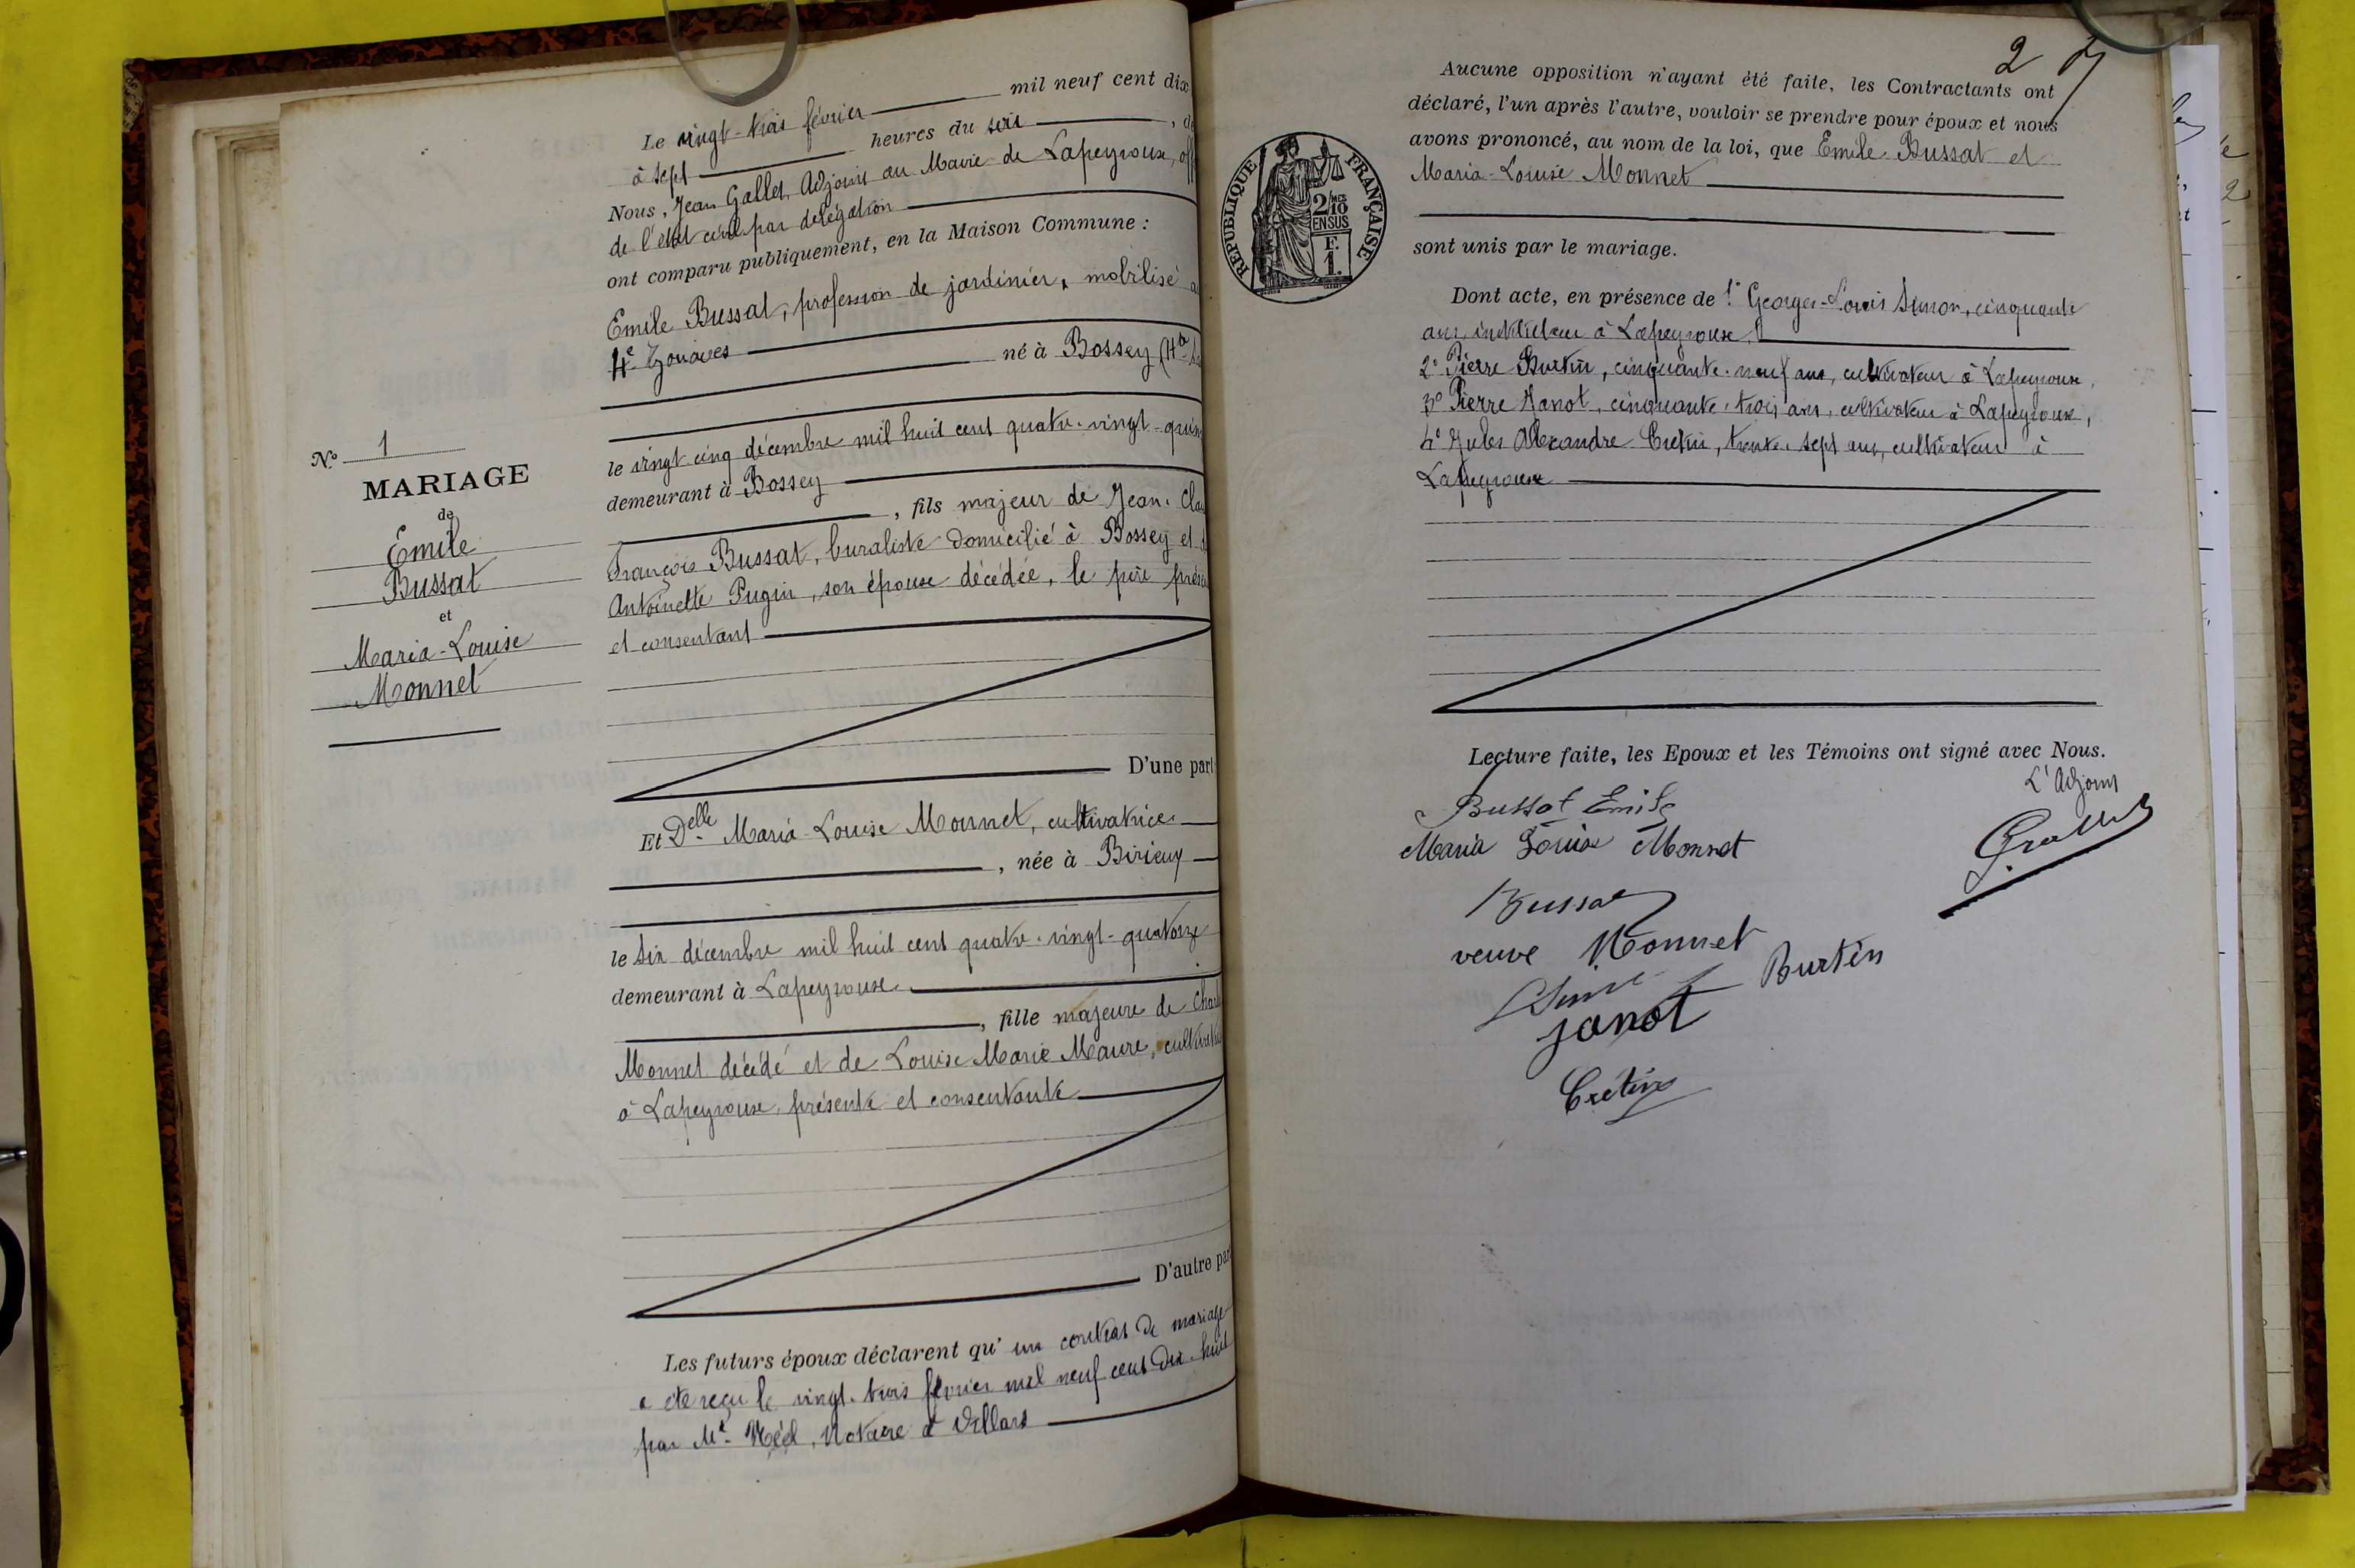 N.º 1
MARIAGE
de
Emile
Bussat
et
Maria-Louise
Monnet
Le vingt-trois février mil neuf cent dix
à sept heures du soir
Nous, Jean Gallet, Adjoint au Maire de Lapeyrouse, off
de l'état civil par délégation
ont comparu publiquement, en la Maison Commune :
Emile Bussat, profession de jardinier, mobilisé a
4e Zouaves
né à Bossey (Hte
le vingt cinq décembre mil huit cent quatre-vingt-quin
demeurant à Bossey
, fils majeur de Jean-Cla
François Bussat, buraliste domicilié à Bossey et d
Antoinette Pugin, son épouse décédée, le père prése
et consentant
D'une part
Et Delle Maria-Louise Monnet, cultivatrice
, née à Birieux
le six décembre mil huit cent quatre-vingt-quatorze
demeurant à Lapeyrouse
, fille majeure de Charl
Monnet décédé et de Louise Marie Maure, cultivatri
à Lapeyrouse, présente et consentante
D'autre par
Les futurs époux déclarent qu'un contrat de mariage
a été reçu le vingt-trois février mil neuf cent dix-huit
par Me Notaire à Villars
2
Aucune opposition n'ayant été faite, les Contractants ont
déclaré, l'un après l'autre, vouloir se prendre pour époux et nous
avons prononcé, au nom de la loi, que Emile Bussat et
Maria-Louise Monnet
sont unis par le mariage.
RÉPUBLIQUE FRANÇAISE
2/10 MES
EN SUS
F.
1.
Dont acte, en présence de 1° Georges-Louis Simon, cinquante
ans, instituteur à Lapeyrouse,
2° Pierre Burtin, cinquante-neuf ans, cultivateur à Lapeyrouse,
3° Pierre Janot, cinquante-trois ans, cultivateur à Lapeyrouse,
4° Jules Alexandre Cretin, trente-sept ans, cultivateur à
Lapeyrouse
Lecture faite, les Epoux et les Témoins ont signé avec Nous.
L'Adjoint
Bussat Emile
Gallet
Maria Louise Monnet
Bussat
veuve Monnet
Burtin
Simon
Janot
Crétin